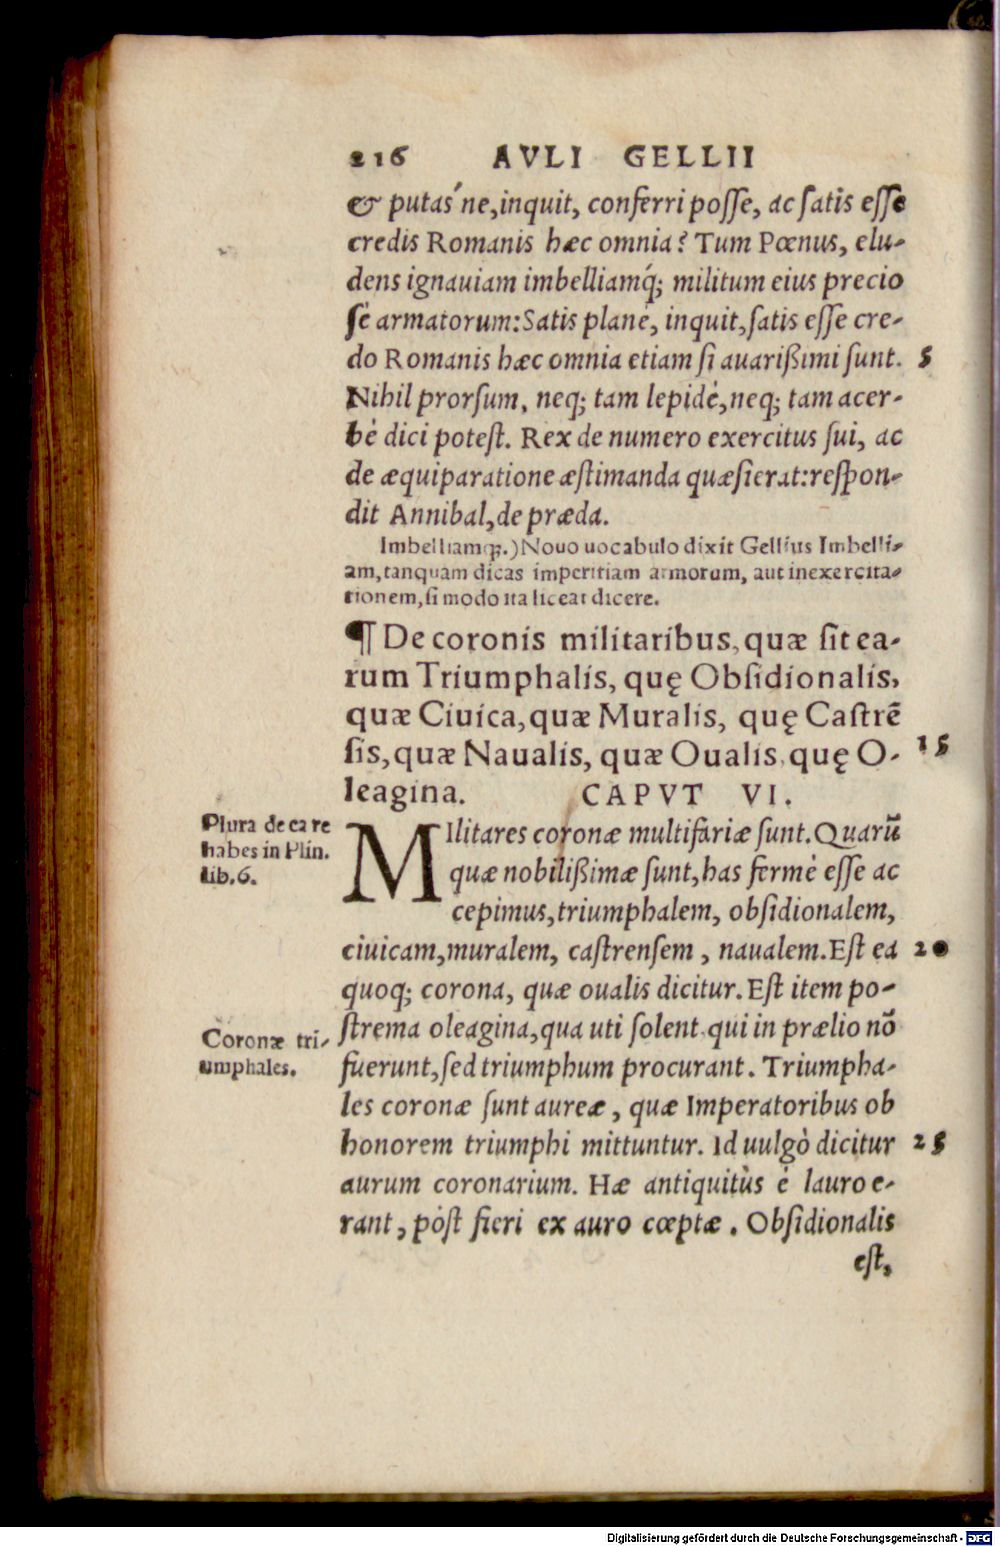 216 AVLI GELLII
& putas'ne, inquit, conferri posse, ac satis esse
credis Romanis hæc omnia? Tum Pœnus, elu-
dens ignauiam imbelliamq́; militum eius precio
sè armatorum: Satis planè, inquit, satis esse cre-
do Romanis hæc omnia etiam si auarißimi sunt. 5
Nihil prorsum, neq; tam lepidè, neq; tam acer-
bè dici potest. Rex de numero exercitus sui, ac
de æquiparatione æstimanda quæsierat: respon-
dit Annibal, de præda.
Imbelliamq;.) Nouo uocabulo dixit Gellius Imbelli-
am, tanquam dicas imperitiam armorum, aut inexercita-
tionem, si modo ita liceat dicere.
¶ De coronis militaribus, quæ sit ea-
rum Triumphalis, quę Obsidionalis,
quæ Ciuica, quæ Muralis, quę Castrē
sis, quæ Naualis, quæ Oualis, quę O- 15
leagina. CAPVT VI.
Plura de ea re
habes in Plin.
lib.6.
MIlitares coronæ multifariæ sunt. Quarū
quæ nobilißimæ sunt, has fermè esse ac
cepimus, triumphalem, obsidionalem,
ciuicam, muralem, castrensem, naualem. Est ea 20
quoq; corona, quæ oualis dicitur. Est item po-
strema oleagina, qua uti solent qui in prælio nō
Coronæ tri-
umphales.
fuerunt, sed triumphum procurant. Triumpha-
les coronæ sunt aureæ, quæ Imperatoribus ob
honorem triumphi mittuntur. Id uulgò dicitur 25
aurum coronarium. Hæ antiquitùs è lauro e-
rant, pòst fieri ex auro cœptæ. Obsidionalis
est,
Digitalisierung gefördert durch die Deutsche Forschungsgemeinschaft - DFG